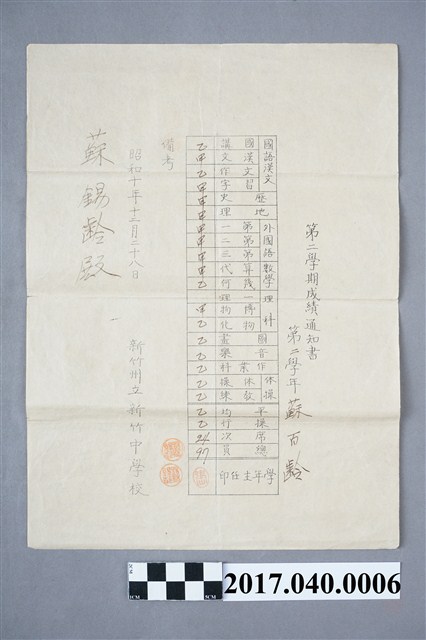 第二學期成績通知書
第二學年 蘇百齡
國語漢文 國漢文習 漢文作字 乙甲乙甲
歷地 史理 甲甲
外國語 第第第 一二三 甲甲甲
數學 算幾 代何 甲乙
理科 一博物 理物化 甲乙
圖 畫 乙
音 樂 乙
作業 科 乙
體操 體教 操練 乙乙
平 均 乙
操 行 乙
席 次 24
總 員 97
學年主任印
備考
昭和十年十二月二十八日
新竹州立新竹中學校
蘇錫齡殿
2017.040.0006